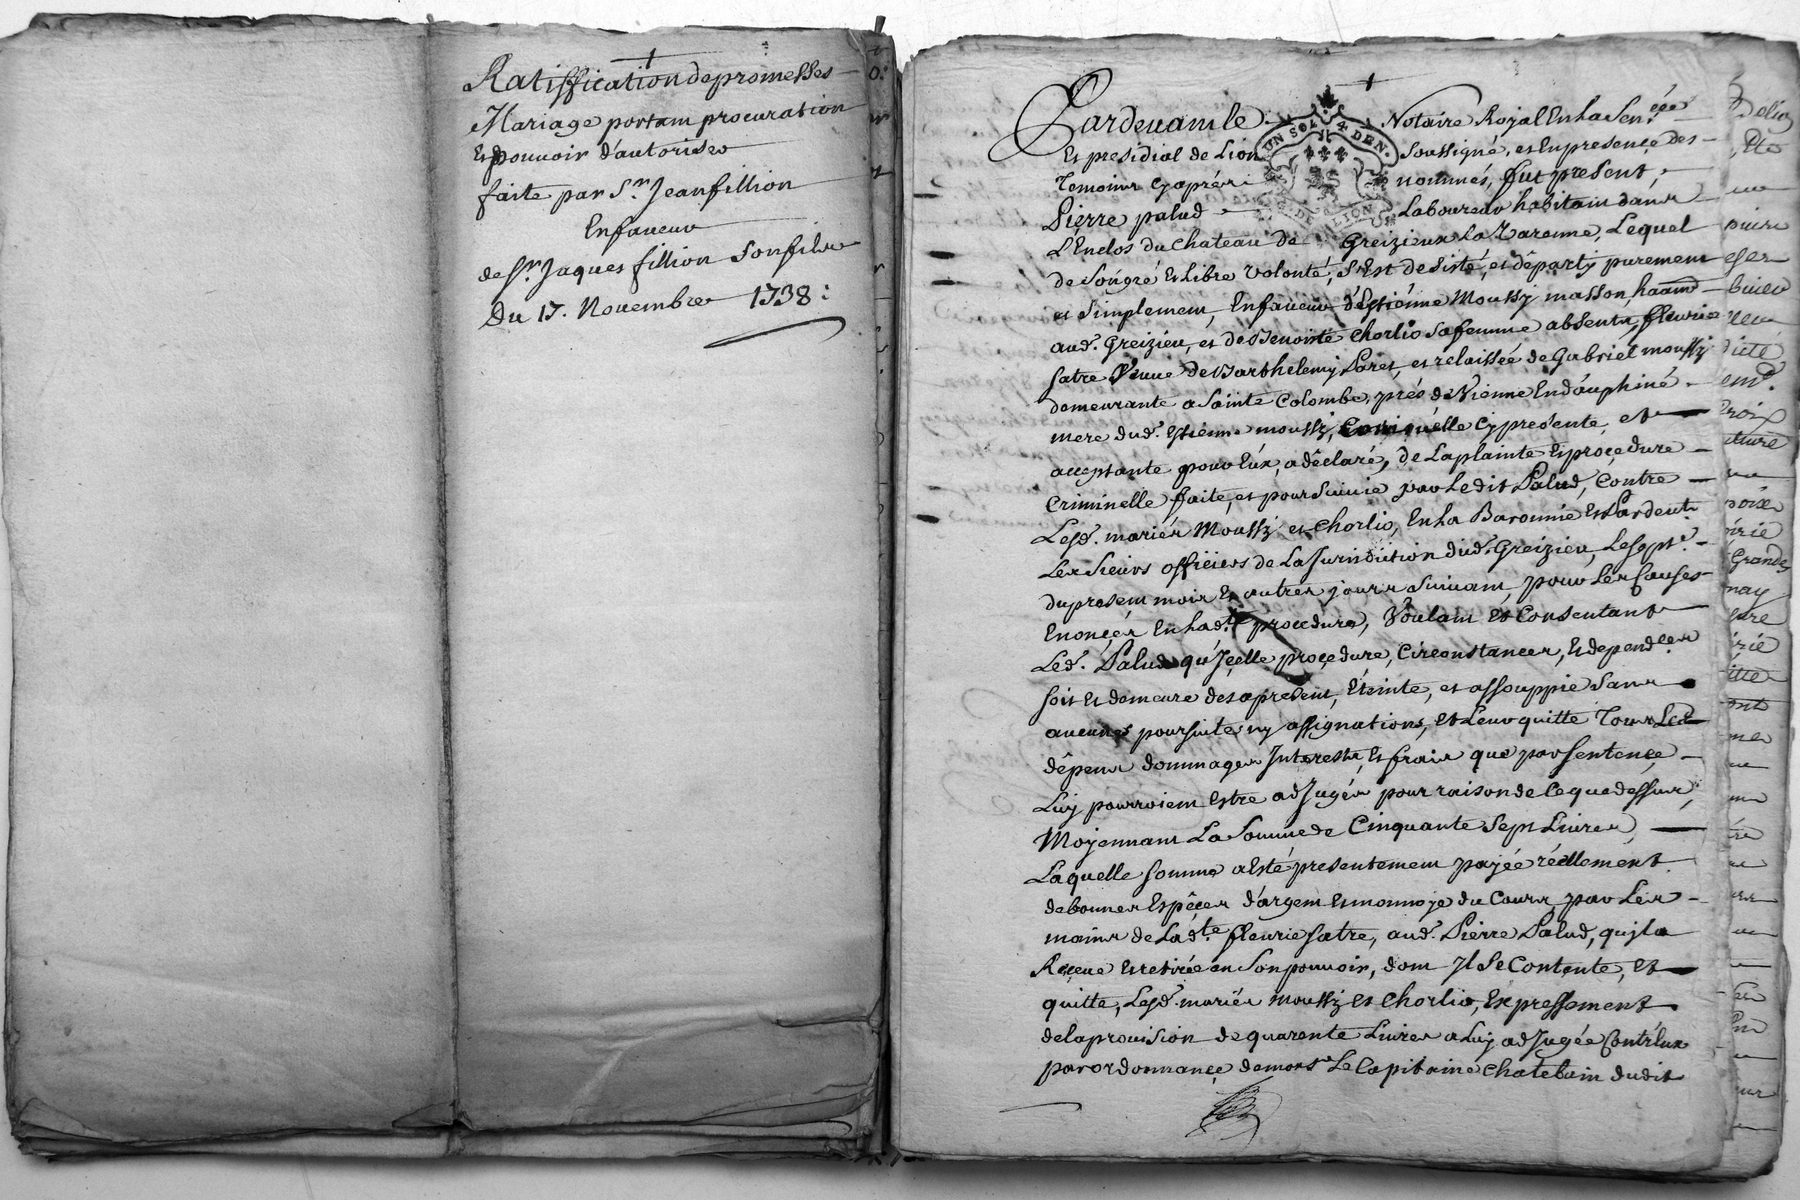 Ratiffication de promesses
Mariage portam procuration
et pouvoir d'autoriser
faite par Sr. Jean fillion
En faveur
de Sr. Jaques fillion son fils
Du 17. Novembre 1738:
Pardevam le Notaire Royal En la Sen.ée
Et presidial de Lion soussigné, et En presence des
Temoins cy aprés nommés, fut present,
Pierre palud Laboureur habitam dans
L'Enclos du Chateau de Greizieu la Varenne, Lequel
de son gré et Libre volonté, s'Est desisté, et départy purement
et simplement, En faveur d'Estienne Moussy masson, haam
aud. Greizieu, et de Benoiste Chorlio sa femme absents, fleurie
satre Veuve de Barthelemy Paret, et relaissée de Gabriel moussy
demeurante a Sainte Colombe, prés de Vienne En dauphiné
mere dud. Estienne moussy, Cy presente, et
acceptante pour Eux, a déclaré, de La plainte Et procedure
Criminelle faite, et poursuivie par Ledit Palud, Contre
Lesd. mariés Moussy et Chorlio, En La Baronnie Et Pardevt.
Les Sieurs officiers de La Jurisdiction dud. Greizieu, Le sept.
du present mois Et autres jours suivam, pour Les Causes
Enoncées En Lad.te procedure, Voulam et Consentant
Led. Palud qu'Jcelle procedure, Circonstances, Et depend.ces
soit Et demeure des apresent, Eteinte, et assouppie sans
aucunes poursuites ny assignations, Et Leur quitte Tous Les
dépens dommages Interests, Et frais que par sentence
Luy pourroiem Estre adJugés pour raison de Ce que dessus,
Moyennam La somme de Cinquante Sept Livres,
Laquelle somme a Esté presentement payée réellement
de bonnes Espéces d'argem Et monnoye du Cours, par Les
mains de Lad.te fleurie satre, aud. Pierre Palud, qui la
Reçeue Et retirée en son pouvoir, dom Jl se Contente, Et
quitte, Lesd. mariés moussy et Chorlio, Expressement
de la provision de quarente Livres a Luy adJugée Contr'Eux
par ordonnance de mons. Le Capitaine Chatelain dudit
UN SOL 4 DEN.
DE LION